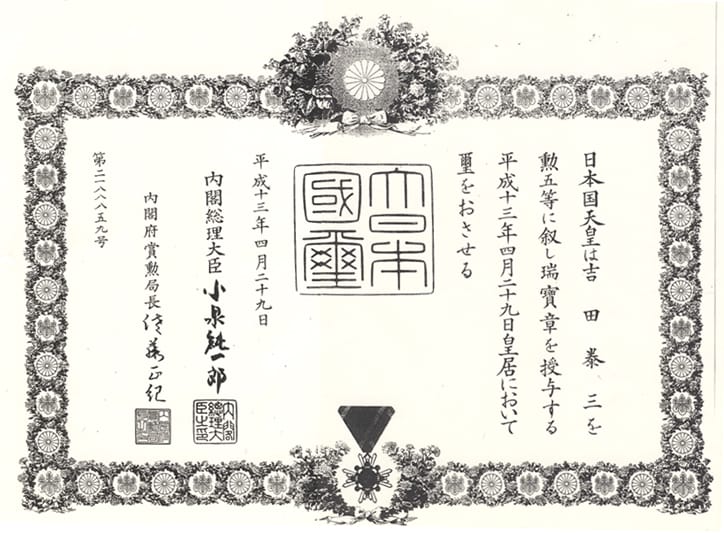 日本国天皇は吉田泰三を
勲五等に叙し瑞寶章を授与する
平成十三年四月二十九日皇居において
璽をおさせる
大日本
國璽
平成十三年四月二十九日
内閣総理大臣 小泉純一郎
内閣総理大臣之印
内閣府賞勲局長 佐藤正紀
第二一八八八五九号